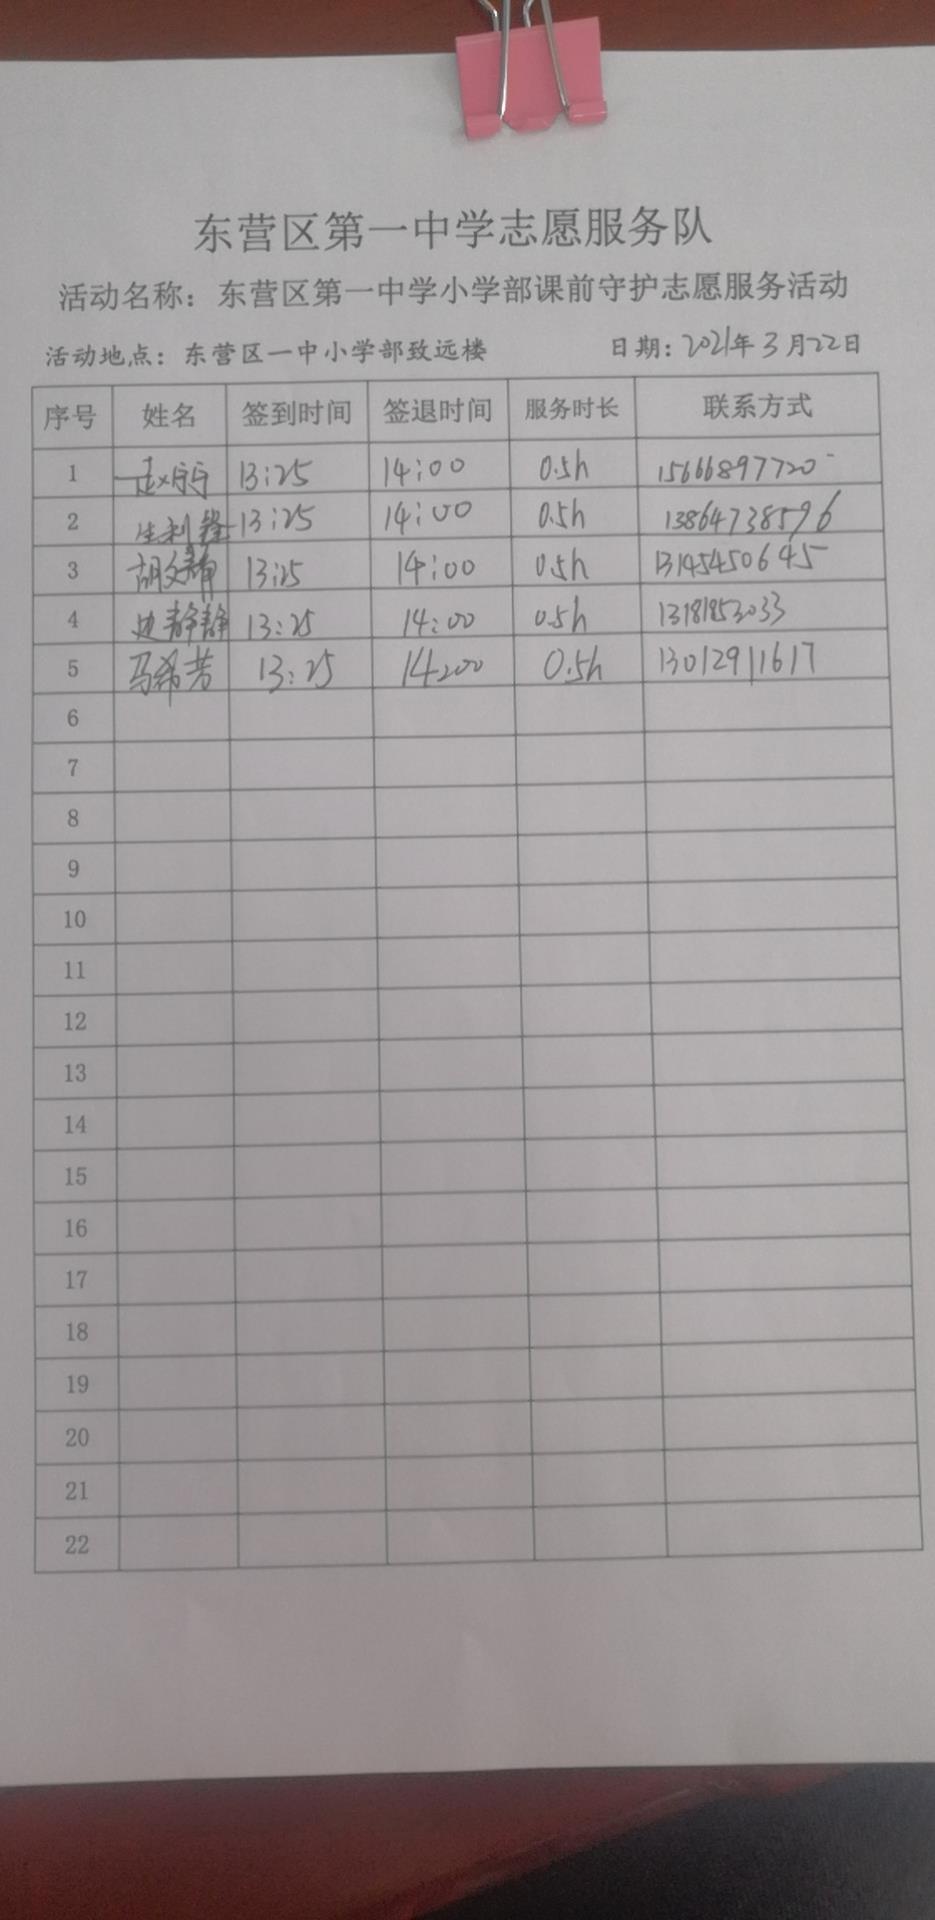 东营区第一中学志愿服务队
活动名称：东营区第一中学小学部课前守护志愿服务活动
活动地点：东营区一中小学部致远楼 日期：2021年3月22日
序号 姓名 签到时间 签退时间 服务时长 联系方式
1 赵宁宁 13:25 14:00 0.5h 15666897720
2 13:25 14:00 0.5h 13864738596
3 胡文静 13:25 14:00 0.5h 13145450645
4 史静静 13:25 14:00 0.5h 13181853033
5 马希芳 13:25 14:00 0.5h 13012911617
6
7
8
9
10
11
12
13
14
15
16
17
18
19
20
21
22